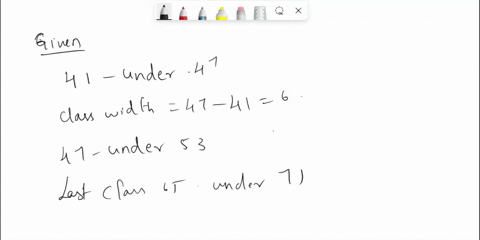 Given
41 - under 47
class width = 47 - 41 = 6
47 - under 53
Last class 65 under 71